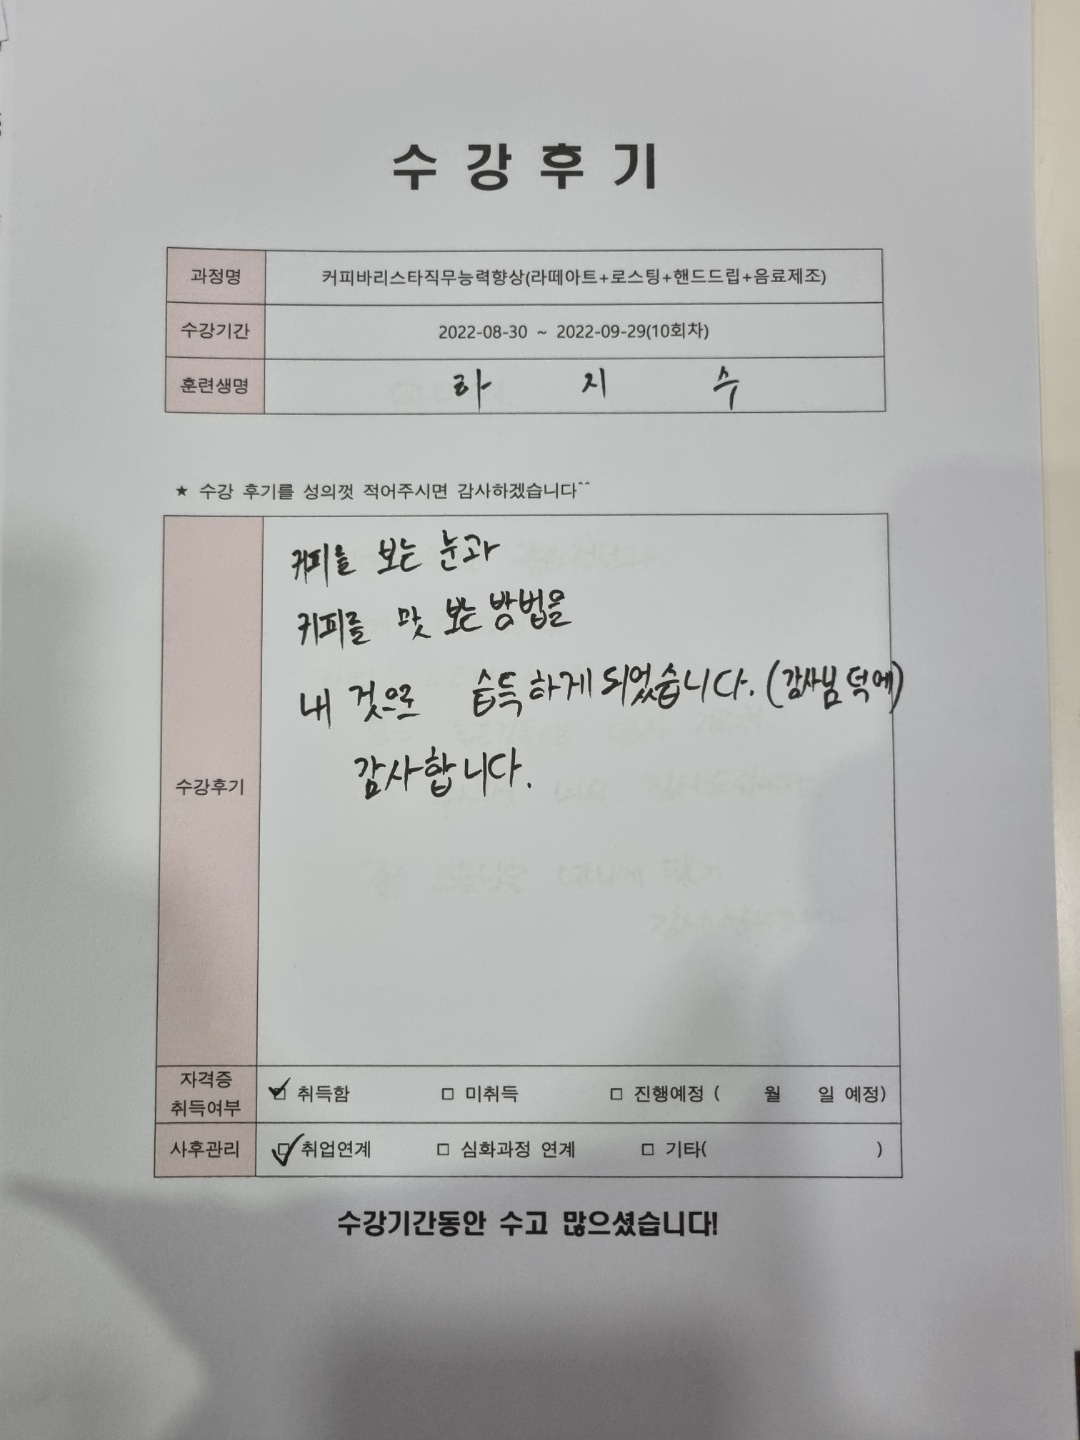 수 강 후 기
과정명 커피바리스타직무능력향상(라떼아트+로스팅+핸드드립+음료제조)
수강기간 2022-08-30 ~ 2022-09-29(10회차)
훈련생명 하 지 수
★ 수강 후기를 성의껏 적어주시면 감사하겠습니다^^
커피를 보는 눈과
커피를 맛 보는 방법을
내 것으로 습득하게 되었습니다. (감사님 덕에)
감사합니다.
수강후기
자격증
취득여부
☑ 취득함 □ 미취득 □ 진행예정 ( 월 일 예정)
사후관리 ☑ 취업연계 □ 심화과정 연계 □ 기타( )
수강기간동안 수고 많으셨습니다!